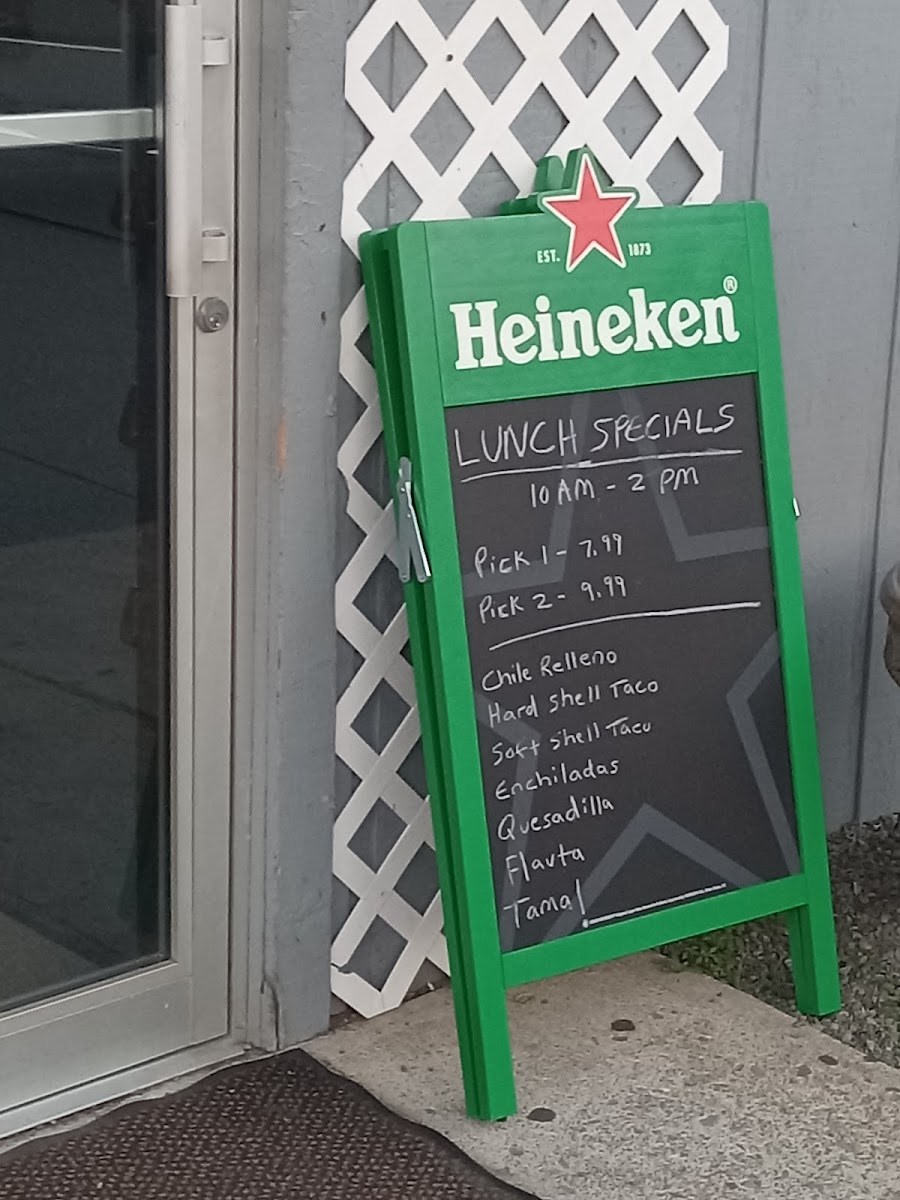 EST. 1873
Heineken®
LUNCH SPECIALS
10 AM - 2 PM
Pick 1 - 7.99
Pick 2 - 9.99
Chile Relleno
Hard Shell Taco
Soft Shell Taco
Enchiladas
Quesadilla
Flauta
Tamal